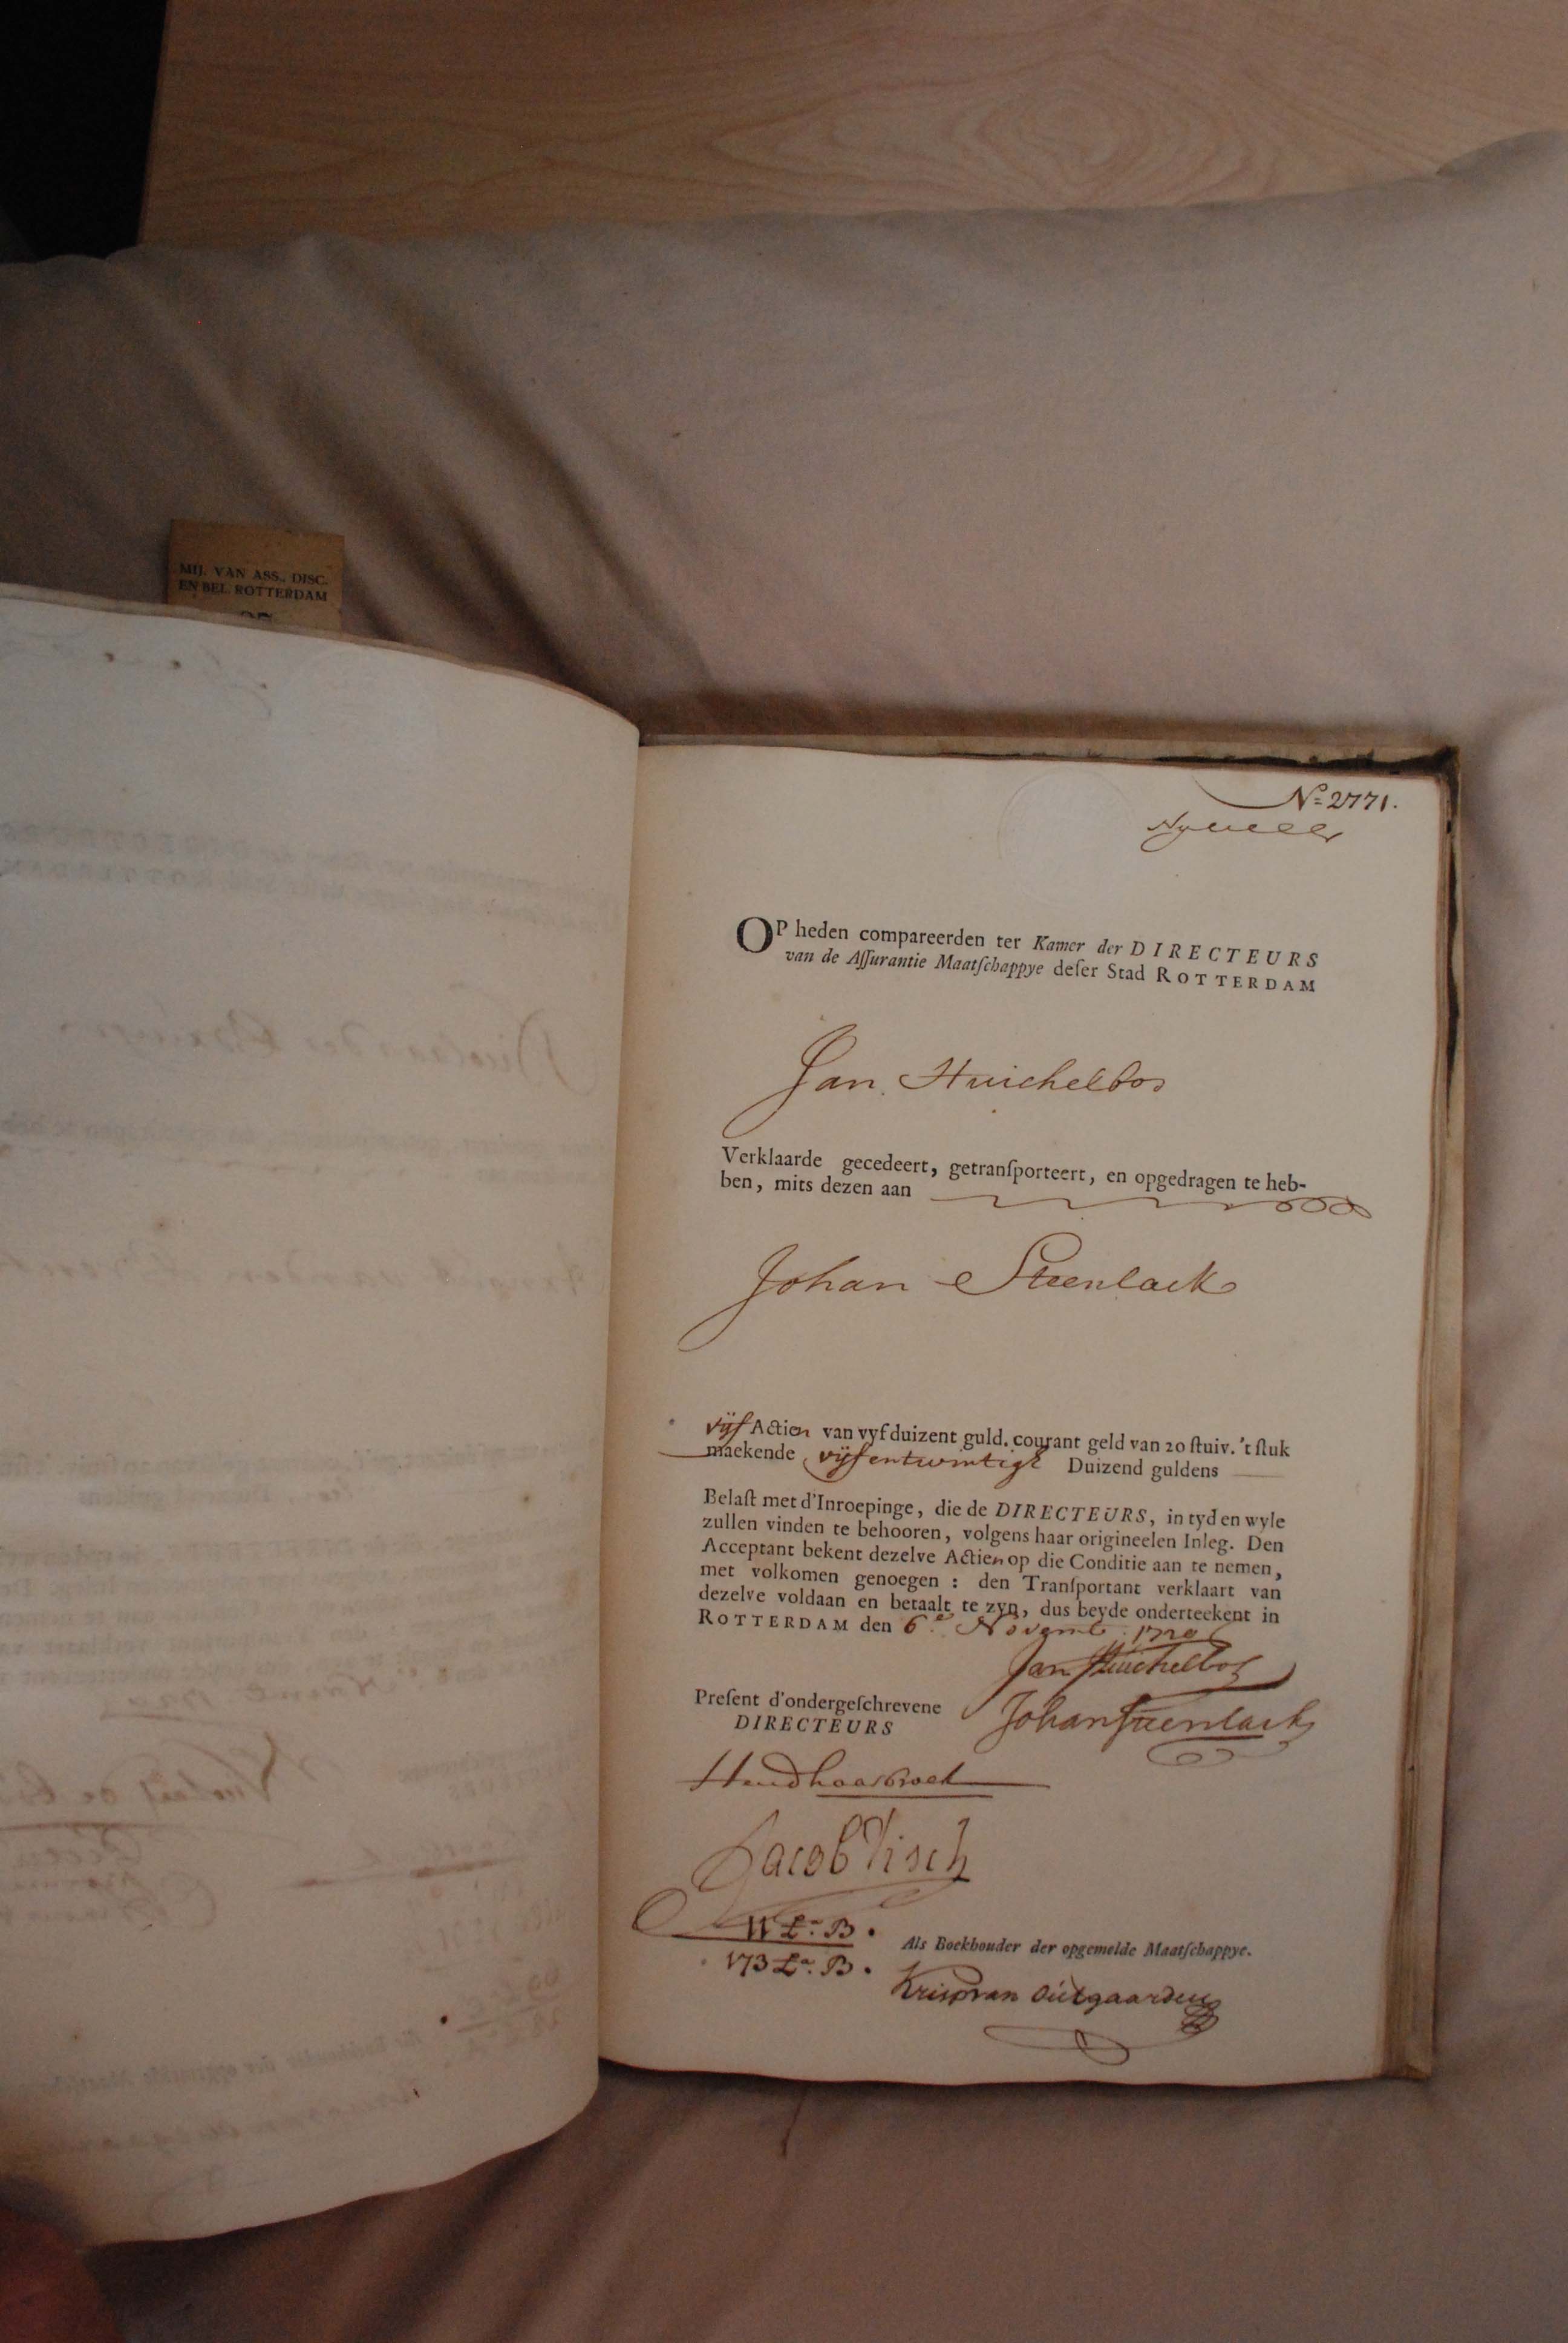 MIJ. VAN ASS., DISC.
EN BEL. ROTTERDAM
N:2771.
OP heden compareerden ter Kamer der DIRECTEURS
van de Aſſurantie Maatſchappye deſer Stad ROTTERDAM
Jan Huichelbos
Verklaarde gecedeert, getranſporteert, en opgedragen te heb-
ben, mits dezen aan
Johan Steenlack
vijf Actien van vyf duizent guld. courant geld van 20 ſtuiv. 't ſtuk
maekende vijfentwintigh Duizend guldens
Belaſt met d'Inroepinge, die de DIRECTEURS, in tyd en wyle
zullen vinden te behooren, volgens haar origineelen Inleg. Den
Acceptant bekent dezelve Actien op die Conditie aan te nemen,
met volkomen genoegen : den Tranſportant verklaart van
dezelve voldaan en betaalt te zyn, dus beyde onderteekent in
ROTTERDAM den 6.e Novemb. 1720
Jan Huichelbos
Preſent d'ondergeſchrevene
DIRECTEURS
Johan Steenlack
Jacob Visch
11 La. B.
173 La. B.
Als Boekhouder der opgemelde Maatſchappye.
Krispvan Outgaarden